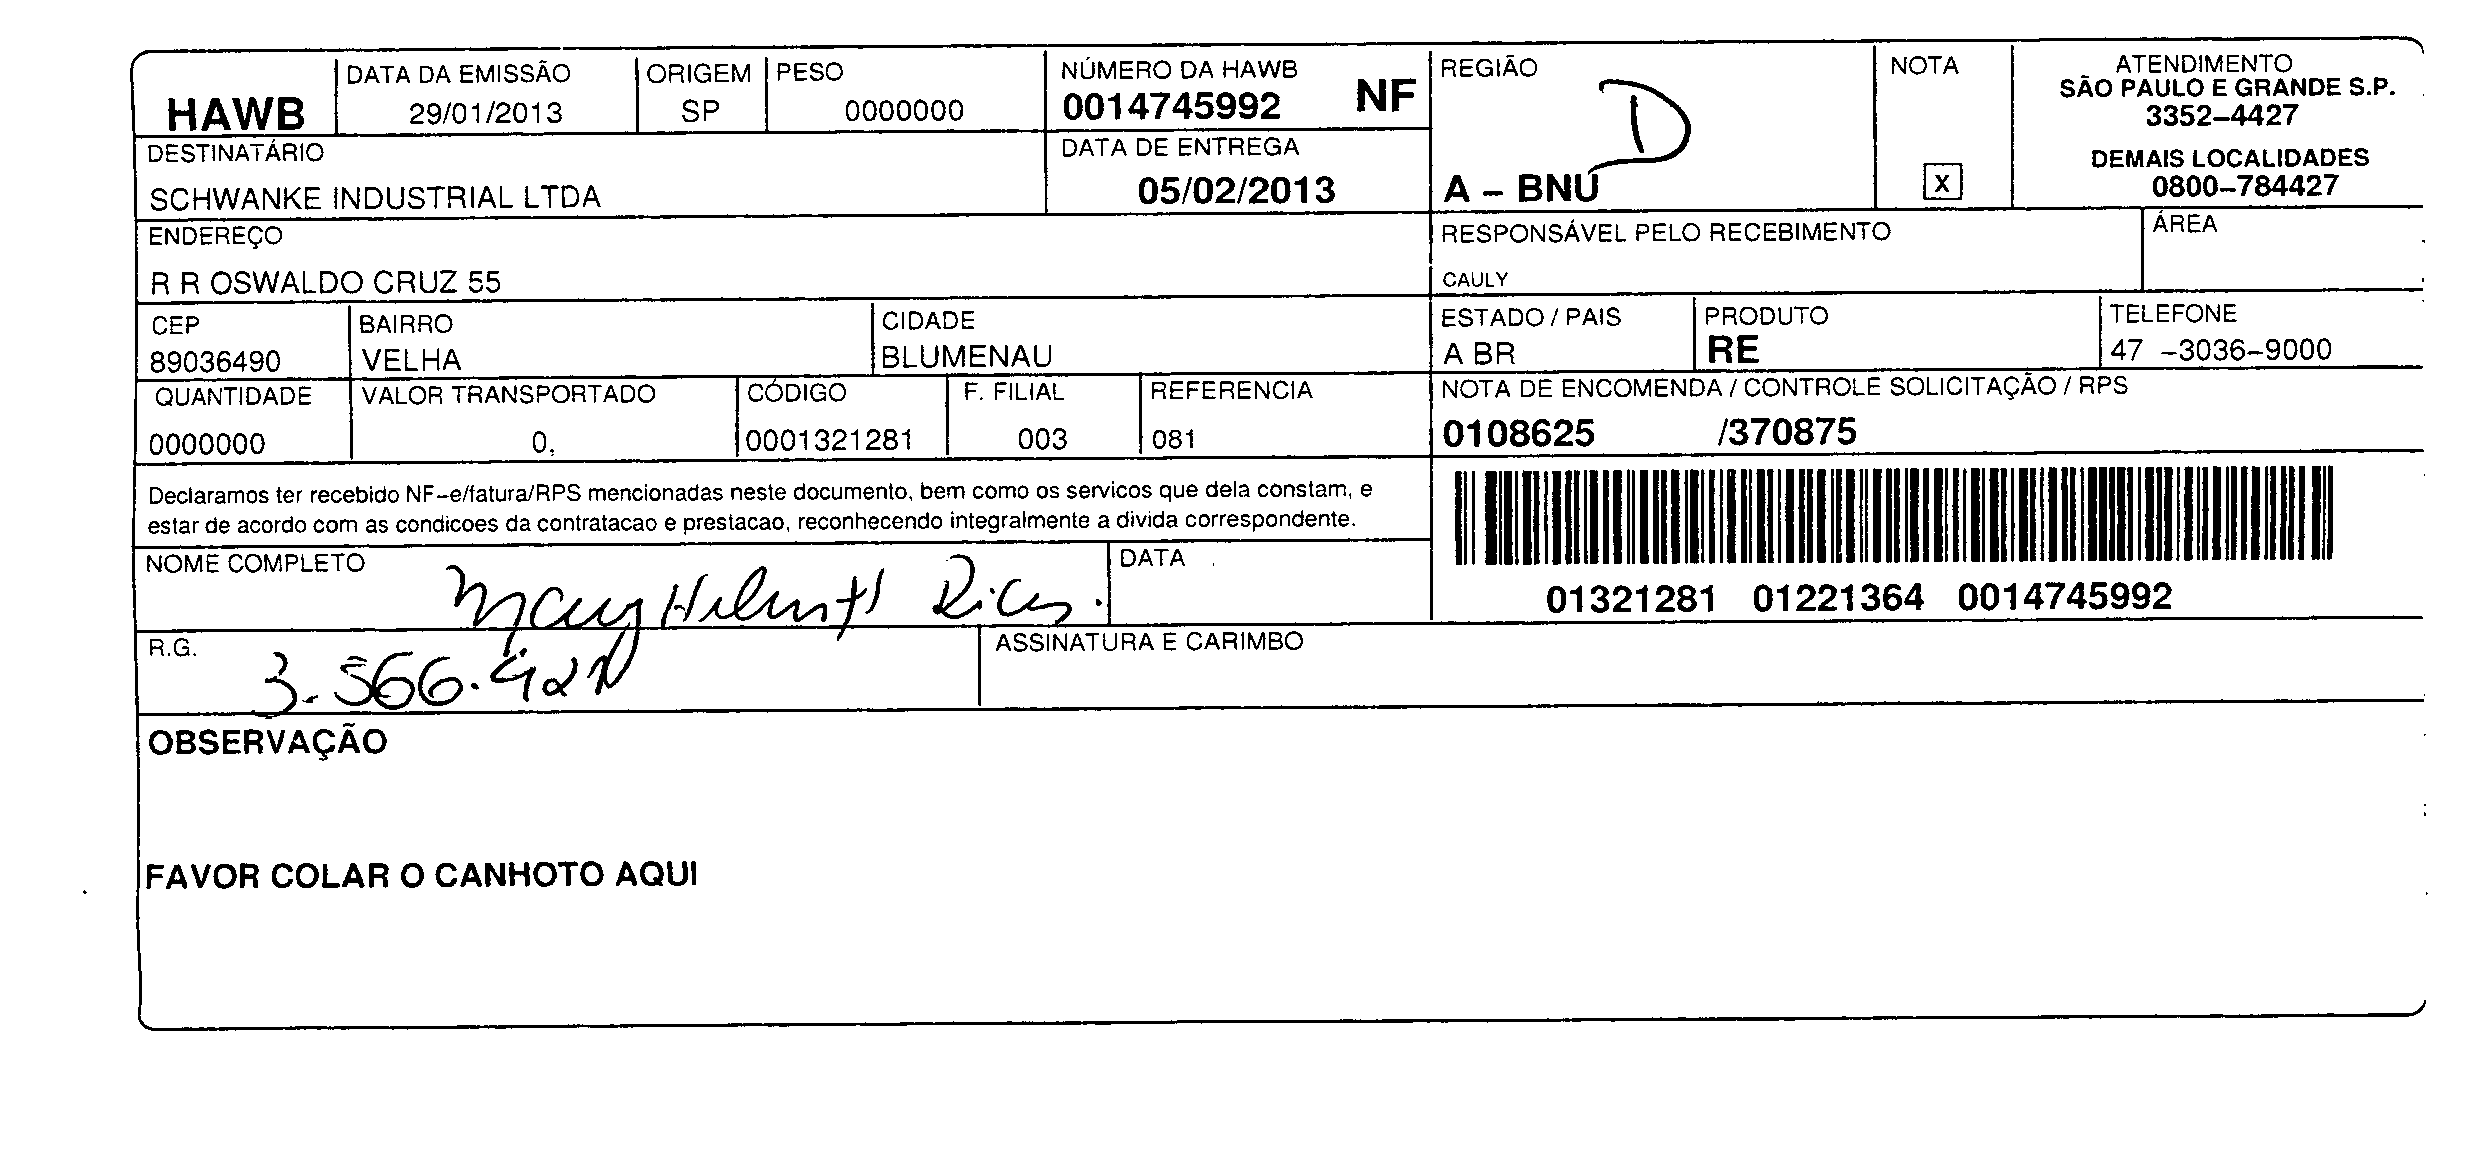 HAWB
DATA DA EMISSÃO
29/01/2013
ORIGEM
SP
PESO
0000000
NÚMERO DA HAWB
0014745992 NF
REGIÃO
D
A – BNU
NOTA
X
ATENDIMENTO
SÃO PAULO E GRANDE S.P.
3352–4427
DEMAIS LOCALIDADES
0800–784427
DESTINATÁRIO
SCHWANKE INDUSTRIAL LTDA
DATA DE ENTREGA
05/02/2013
ENDEREÇO
R R OSWALDO CRUZ 55
RESPONSÁVEL PELO RECEBIMENTO
CAULY
ÁREA
CEP
89036490
BAIRRO
VELHA
CIDADE
BLUMENAU
ESTADO / PAIS
A BR
PRODUTO
RE
TELEFONE
47 –3036–9000
QUANTIDADE
0000000
VALOR TRANSPORTADO
0,
CÓDIGO
0001321281
F. FILIAL
003
REFERENCIA
081
NOTA DE ENCOMENDA / CONTROLE SOLICITAÇÃO / RPS
0108625 /370875
Declaramos ter recebido NF–e/fatura/RPS mencionadas neste documento, bem como os servicos que dela constam, e
estar de acordo com as condicoes da contratacao e prestacao, reconhecendo integralmente a divida correspondente.
01321281 01221364 0014745992
NOME COMPLETO
DATA
R.G.
3.566.
ASSINATURA E CARIMBO
OBSERVAÇÃO
FAVOR COLAR O CANHOTO AQUI